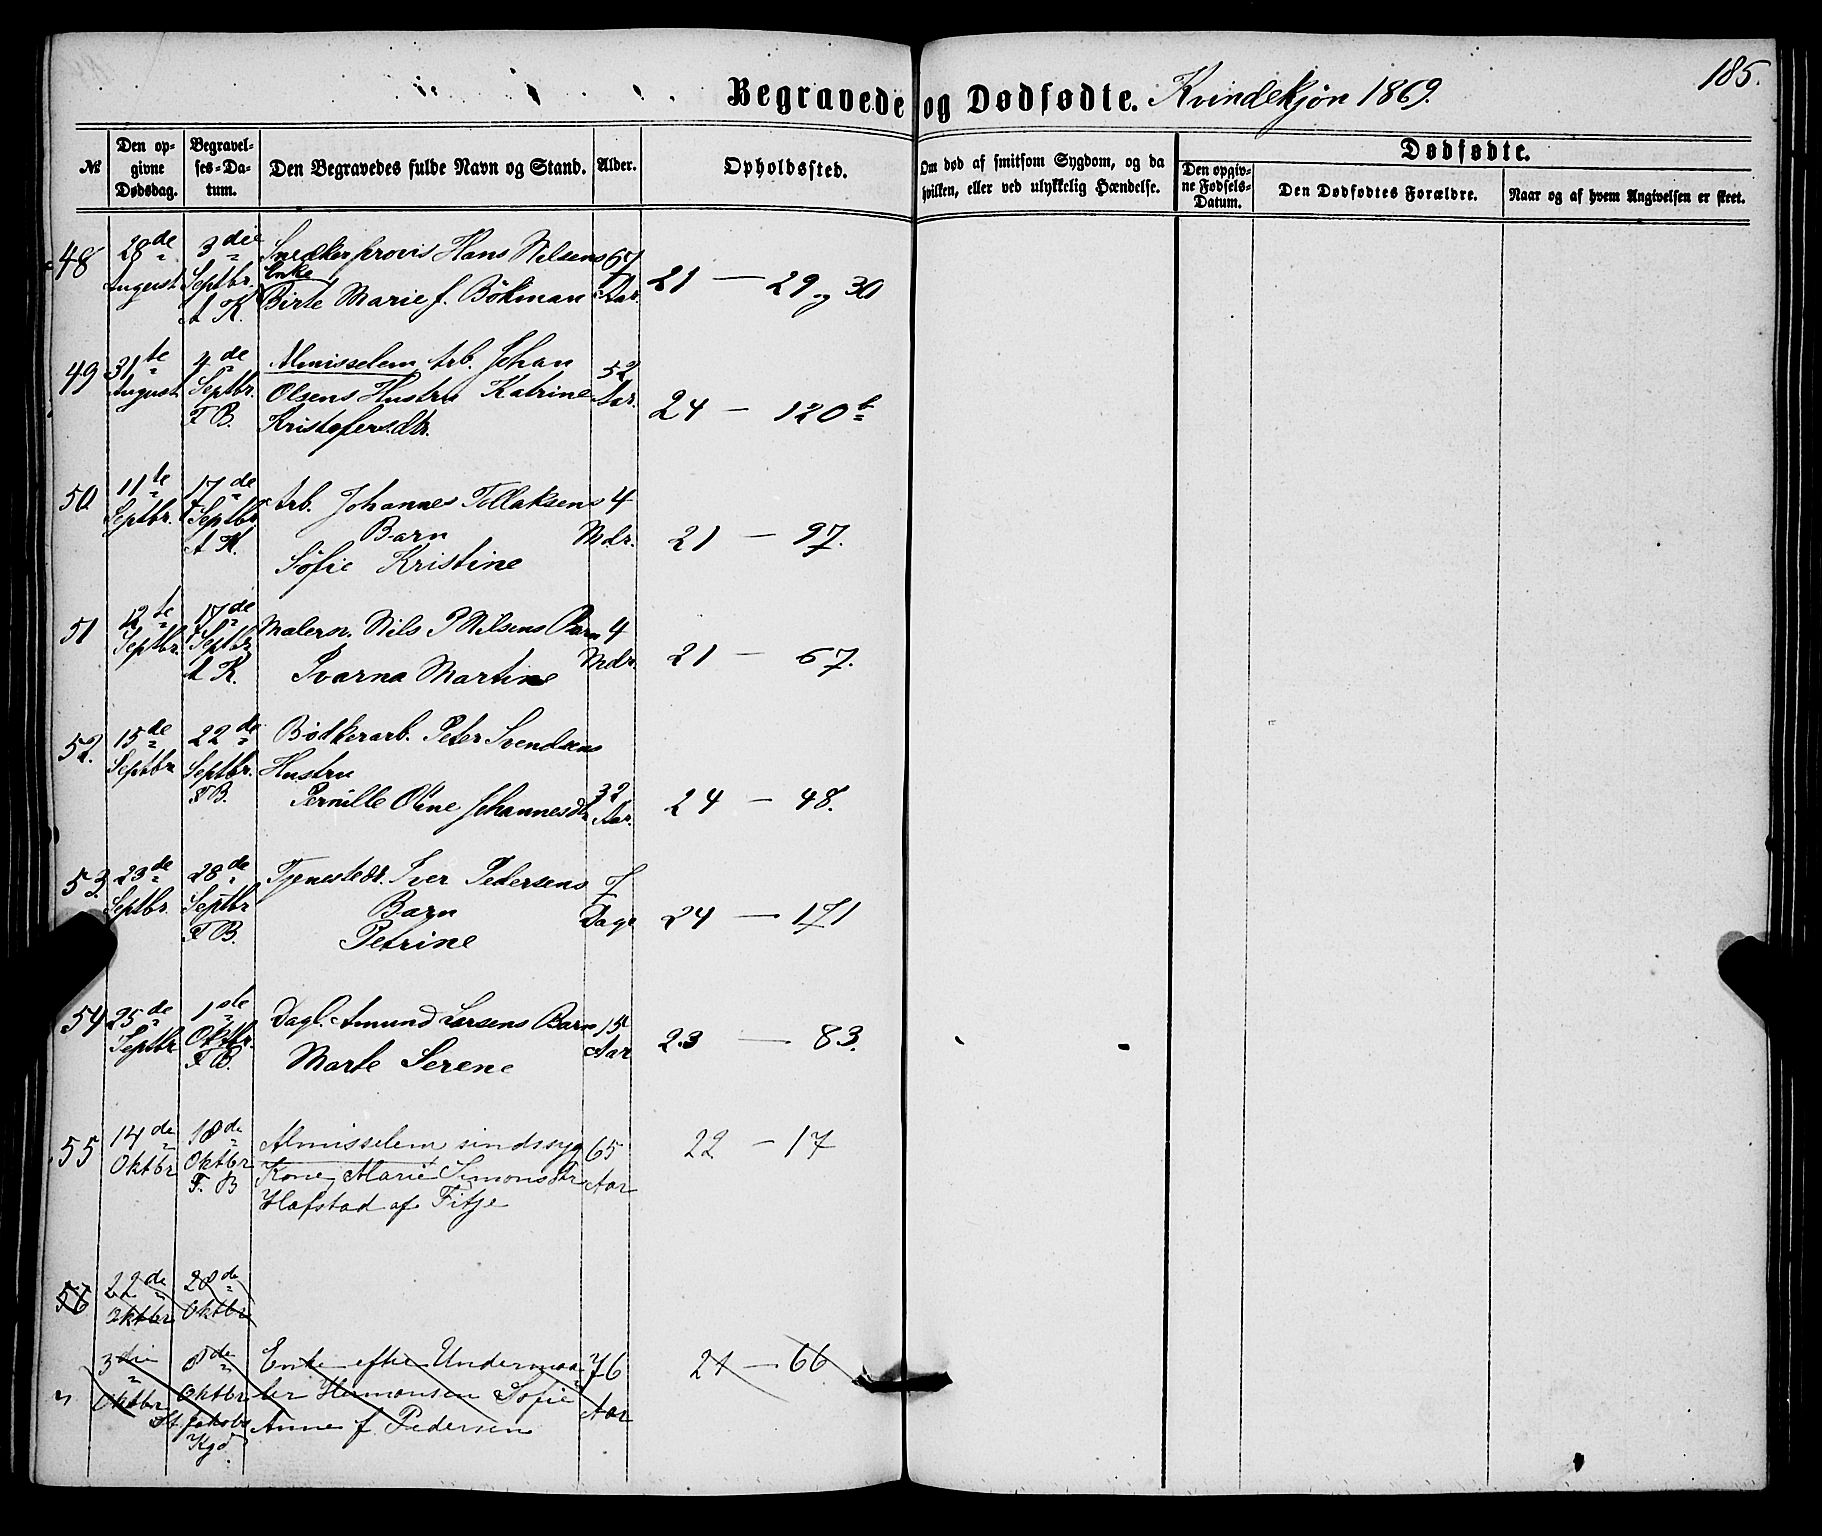 185.
Begravede og Dødfødte. Kvindekjøn 1869.
№ Den opgivne Dødsdag. Begravelses-Datum. Den Begravedes fulde Navn og Stand. Alder. Opholdssted. Om død af smitsom Sygdom, og da hvilken, eller ved ulykkelig Hændelse. Dødfødte. Den opgivne Fødsels-Datum. Den Dødfødtes Forældre. Naar og af hvem Angivelsen er skeet.
48 28de 3die Snedker provis Hans Nilsens 67
August Septbr. Enke
A K. Birte Marie f. Bökman Aar. 21 — 29 og 30
49 31te 4de Almisselem Arb. Johan 52
August Septbr. Olsens Hustru Katrine Aar. 24 — 120b
F B. Kristofersdtr.
50 11te 17de Arb. Johannes Tollaksens 4
Septbr. Septbr. Barn Mdr. 21 — 97.
A K. Sofie Kristine
51 12te 17de Malersv. Nils P Nilsens Barn 4
Septbr. Septbr. Mdr. 21 — 67.
A K. Ivarna Martine
52. 15de 22de Bödkerarb. Peter Svendsens
Septbr Septbr. Hustru
F B. Pernille Oline Johannesdtr 32 Aar. 24 — 48.
53 23de 28de Tjenestedr. Iver Pedersens 7
Septbr. Septbr Barn Dage 24 — 171
F B. Petrine
54 25de 1ste Dagl. Amund Larsens Barn 15
Septbr Oktbr. Aar 23 — 83.
F B. Marte Serene
55 14de 18de Almisselem, sindssyg 65 22 — 17
Oktbr Oktbr Kone Marie Simonsdtr Aar
F. B Hafstad af Fitje
56 22de 28de
Oktbr Oktbr
3die 8de Enke efter Undermaa 76 21 — 66
" Oktbr Oktbr ler Hermansen Sofie Aar
St. Jakobs Anne f. Pedersen
Kgd.